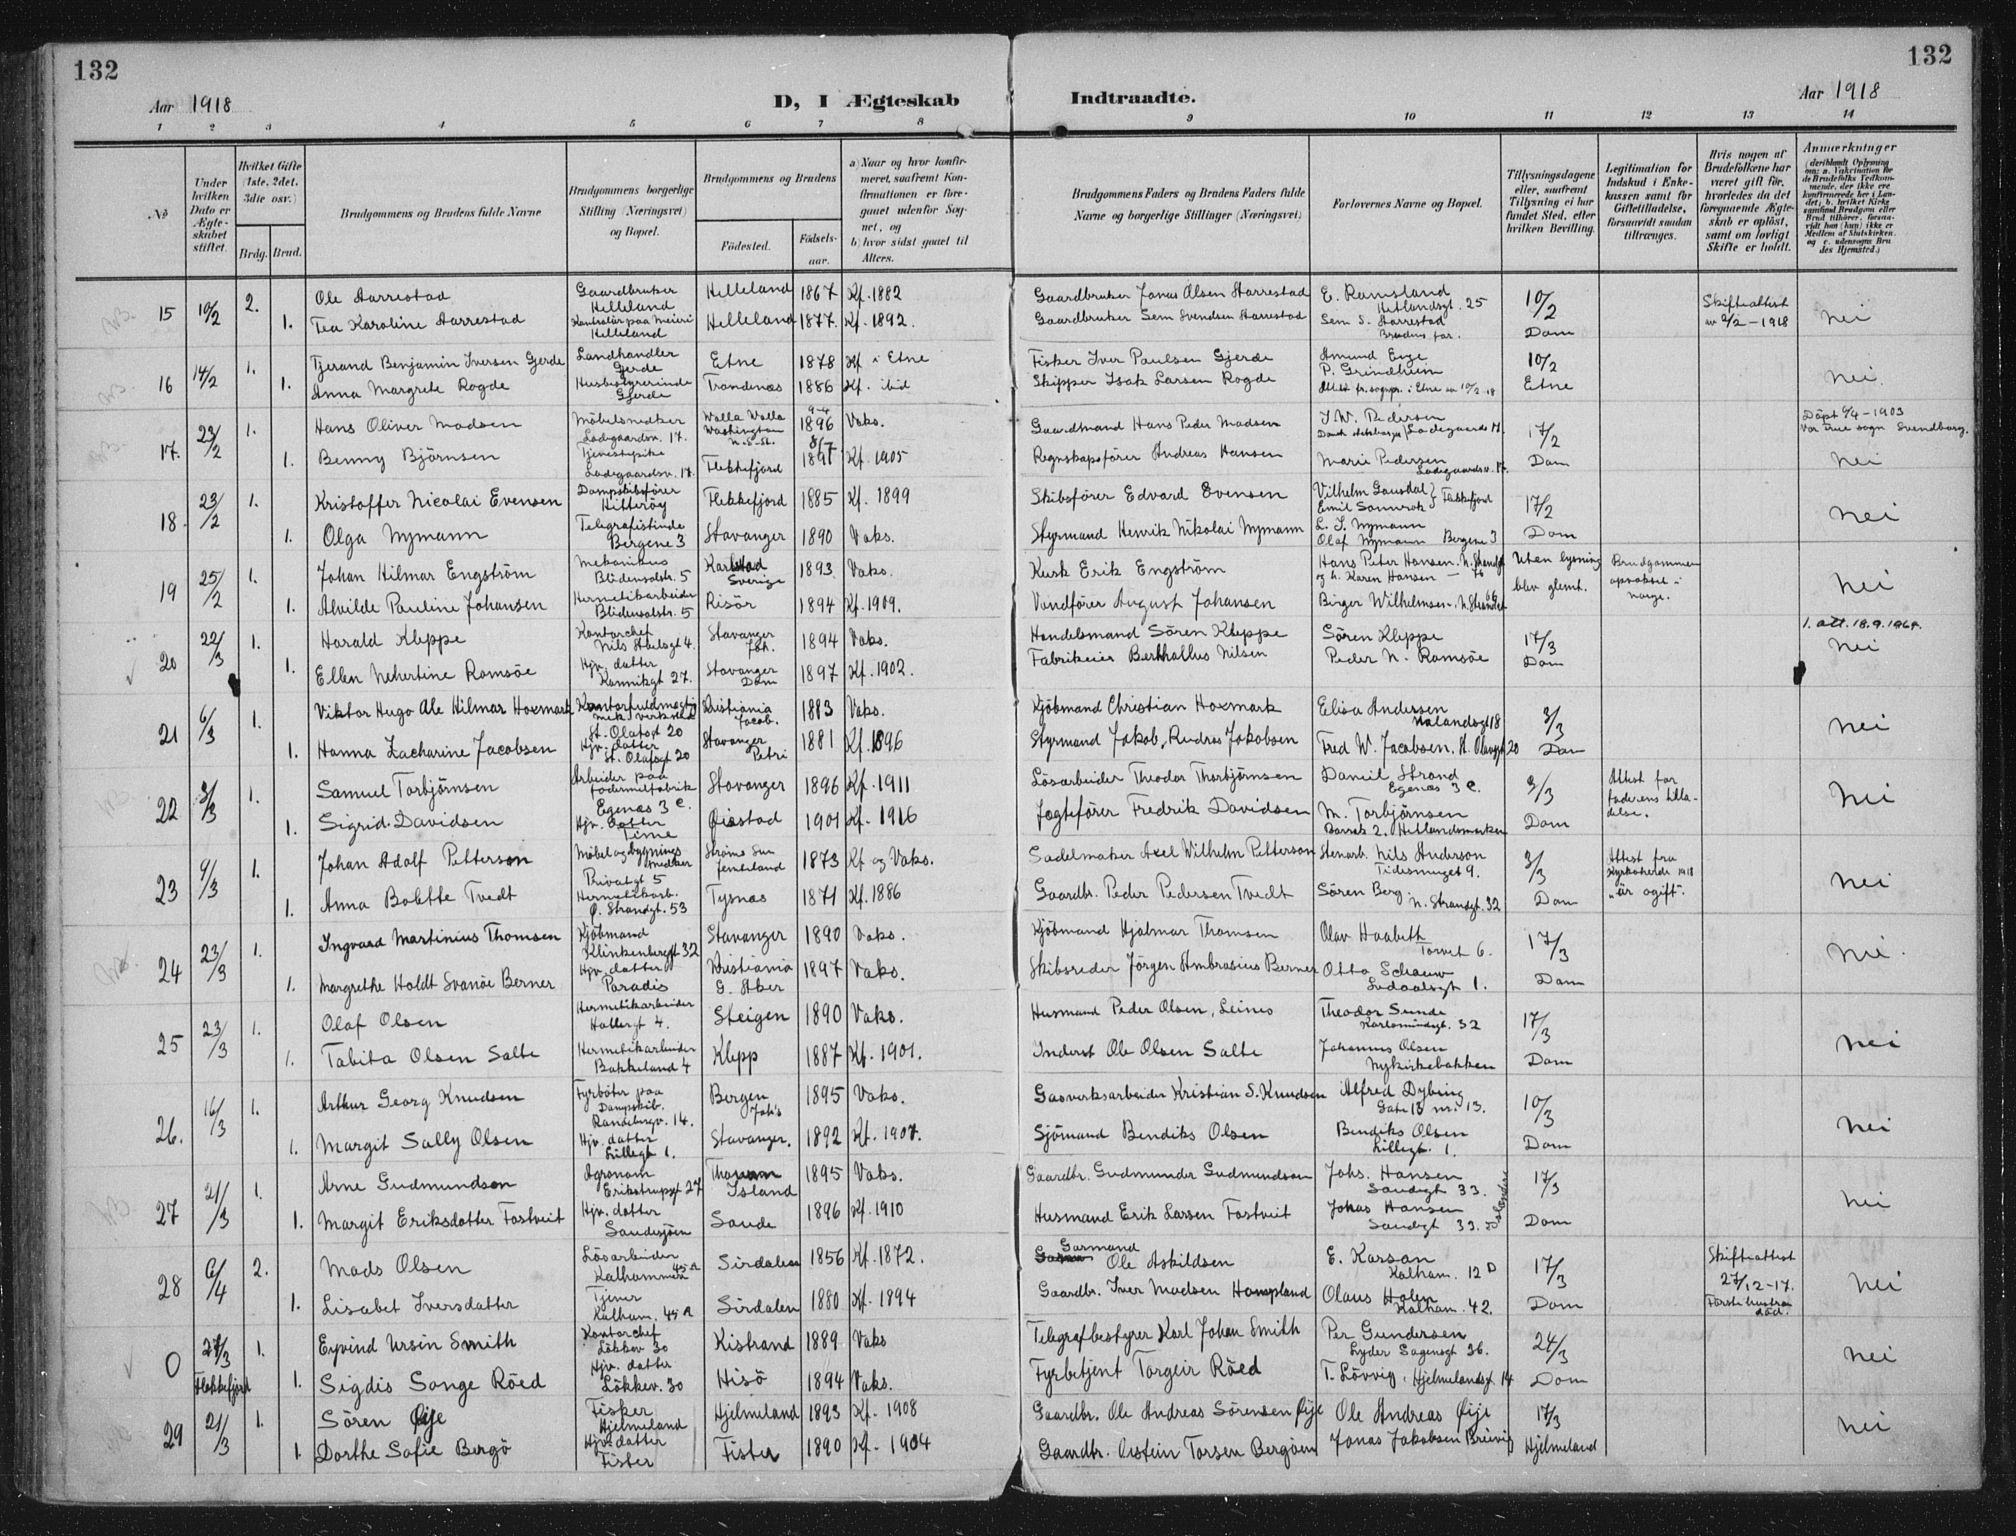 132
132
Aar 1918
D, I Ægteskab
Indtraadte.
Aar 1918
1 2 3 4 5 6 7 8 9 10 11 12 13 14
No
Under hvilken Dato er Ægteskabet stiftet.
Hvilket Gifte (1ste, 2det, 3die osv.)
Brdg. Brud.
Brudgommens og Brudens fulde Navne
Brudgommens borgerlige Stilling (Næringsvei) og Bopæl.
Brudgommens og Brudens
Fødested.
Fødselsaar.
a) Naar og hvor konfirmeret, saafremt Konfirmationen er foregaaet udenfor Sognet, og
b) hvor sidst gaaet til Alters.
Brudgommens Faders og Brudens Faders fulde Navne og borgerlige Stillinger (Næringsvei)
Forlovernes Navne og Bopæl.
Tillysningsdagene eller, saafremt Tillysning ei har fundet Sted, efter hvilken Bevilling.
Legitimation for Indskud i Enkekassen samt for Giftetilladelse, forsaavidt saadan tiltrænges.
Hvis nogen af Brudefolkene har været gift før, hvorledes da det foregaaende Ægteskab er opløst, samt om lovligt Skifte er holdt.
Anmærkninger
15 10/2 2. Ole Aarrestad Gaardbruker Helleland Helleland 1867 Kf. 1882 Gaardbruker Jonas Olsen Aarrestad E. Ramsland Hetlandsgt. 25 10/2 Skifteattest av 2/2-1918 nei
1. Tea Karoline Aarrestad Kontrolør paa Meieri Helleland Helleland 1877. Kf. 1892. Gaardbruker Sem Svendsen Aarrestad Sem S. Aarrestad Brudens far. Dom
16 14/2 1. Tjerand Benjamin Iversen Gjerde Landhandler Gjerde Etne 1878 Kf i Etne Fisker Iver Paulsen Gjerde Amund Enge P. Grindheim 10/2 nei.
1. Anna Margrete Rogde Husbestyrerinde Gjerde Trondenes 1886 Kf. ibid Skipper Isak Larsen Rogde Etne
17. 23/2 1. Hans Oliver Madsen Møbelsnedker Ladegaardsv. 17. Walla Walla Washington 1896 Vaks. Gaardmand Hans Peder Madsen J. W. Pedersen 17/2 Døpt 6/4-1903 Vor Frue sogn Svendborg.
1. Benny Bjørnsen Tjenestepike Ladegaardsv. 17. Flekkefjord 1891 Kf. 1905 Regnskapsfører Andreas Hansen Marie Pedersen Ladegaardsv. 17. Dom nei
18 23/2 1. Kristoffer Nicolai Evensen Dampskibsfører Hitterøy Flekkefjord 1885 Kf. 1899 Skibsfører Edvard Evensen Vilhelm Gausdal Emil Sannrok Flekkefjord 17/2 nei
1. Olga Nymann Telegrafistinde Bergene 3 Stavanger 1890 Vaks. Styrmand Henrik Nikolai Nymann L. S. Nymann Olaf Nymann Bergene 3 Dom
19 25/2 1. Johan Hilmar Engström Mekanikus Blidensolstr. 5 Karlstad Sverige 1893 Vaks. Kusk Erik Engström Hans Peter Hansen. N. Strandgt og h. Karen Hansen - 76 Uten lysning blev glemt. Brudgommen opvokset i Norge. nei
1. Alvilde Pauline Johansen Hermetikarbeider Blidensolstr. 5 Risör 1894 Kf. 1909. Vandfører August Johansen Birger Wilhelmsen. N. Strandgt
20 22/3 1. Harald Kleppe Kontorchef Nils Abelsgt 4. Stavanger Joh. 1894 Vaks. Handelsmand Sören Kleppe Sören Kleppe 17/3 1. att. 18.9.1964. nei
1. Ellen Nehertine Ramsöe Hjv. datter Kannikgt 27. Stavanger Dom 1897 Kf. 1902. Fabrikeier Berthallus Nilsen Peder N. Ramsöe Dom
21 6/3 1. Viktor Hugo Ale Hilmar Hoxmark Kontorfuldmægtig mek. verksted St. Olafsgt 20 Kristiania Jacob. 1883 Vaks. Kjöbmand Christian Hoxmark Elisa Andersen Nalandsgt 18 3/3 nei
1. Hanna Zacharine Jacobsen Hjv. datter St. Olafsgt 20 Stavanger Petri 1881 Kf. 1896 Styrmand Jakob Andreas Jakobsen Fred W. Jacobsen, St. Olavsgt 20 Dom
22 3/3 1. Samuel Torbjørnsen Arbeider paa Fodermelfabrik Egenæs 3 c. Stavanger 1896 Kf. 1911 Lösarbeider Theodor Thorbjørnsen Daniel Strand Egenæs 3 c. 3/3 Attest for faderens tilladelse. nei
1. Sigrid Davidsen Hjv. datter Time Øiestad 1901 Kf. 1916 Jagtefører Fredrik Davidsen M. Torbjørnsen Barrak 2, Hetlandsmarken Dom
23 9/3 1. Johan Adolf Petterson Møbel og bygningssnedker Privatgt 5 Strøms Sun Jemteland 1873 Kf og Vaks. Sadelmaker Axel Wilhelm Petterson Stenarb. Nils Anderson Tidesmuget 9. 3/3 Attest fra Kyrkoherde 1918 "är ogift". nei
1. Anna Bolette Tvedt Hermetikarb. Ø. Strandgt. 53 Tysnæs 1871 Kf. 1886 Gaardbr. Peder Pedersen Tvedt Sören Berg N. Strandgt. 32 Dom
24 23/3 1. Ingvard Martinius Thomsen Kjöbmand Klinkenberggt 32 Stavanger 1890 Vaks. Kjöbmand Hjalmar Thomsen Olav Haabeth Torvet 6. 17/3 nei.
1. Margrethe Holdt Svanöe Berner Hjv. datter Paradis Kristiania G. Aker 1897 Vaks. Skibsreder Jörgen Ambrosius Berner Otto Schauw Ledaalsgt 1. Dom
25 23/3 1. Olaf Olsen Hermetikarbeider Hallergt 4. Steigen 1890 Vaks. Husmand Peder Olsen, Leines Theodor Sunde Karlsmindegt. 32 17/3 nei
1. Tabita Olsen Salte Hermetikarbeider Bakkeland 4 Klepp 1887 Kf. 1901. Inderst Ole Olsen Salte Johannes Olsen Nykirkebakken Dom
26. 16/3 1. Arthur Georg Knudsen Fyrböter paa Dampskib. Randebergv. 14. Bergen Joh's 1895 Vaks. Gasverksarbeider Kristian S. Knudsen Alfred Dybing Gate 13 nr. 13. 10/3 nei
1. Margit Sally Olsen Hjv. datter Lillegt 1. Stavanger. 1892 Kf. 1907. Sjömand Bendiks Olsen Bendiks Olsen Lillegt. 1. Dom
27 21/3 1. Arne Gudmundson Agronom Erikstrupsgt 27 Island 1895 Vaks. Gaardbr. Gudmunder Gudmundson Johs. Hansen Sandvgt 33. 17/3 nei
1. Margit Eriksdatter Fostveit Hjv. datter Sandesjöen Sande 1896 Kf. 1910 Husmand Erik Larsen Fostveit Johas Hansen Sandvgt 33. Dom
28 6/4 2. Mads Olsen Lösarbeider Kalhammeren 45 A Sirdalen 1856 Kf. 1872. Garmand Ole Askildsen E. Karson Kalham. 12 D 17/3 Skifteattest 27/12-17. Første hustru död. nei
1. Lisabet Iversdatter Tjener Kalham. 45 A Sirdalen 1880 Kf. 1894 Gaardbr. Iver Madsen Hompland Olaus Holen Kalham. 42. Dom
0 27/3 Flekkefjord 1. Eyvind Ursin Smith Kontorchef Lökkev 30 Kistrand 1889 Vaks Telegrafbestyrer Karl Johan Smith Per Gundersen Lyder Sagensgt 26. 24/3 nei
1. Sigdis Songe Röed Hjv. datter Lökkev. 30 Hisö 1894 Vaks. Fyrbetjent Torgeir Röed T. Lövvig, Hjelmelandsgt 14 Dom
29 21/3 1. Sören Øije Fisker Hjelmeland Hjelmeland 1893 Kf. 1908 Gaardbr. Ole Andreas Sörensen Øije Ole Andreas Øije 17/3 nei
1. Dorthe Sofie Bergö Hjv. datter Fister Fister 1890 Kf. 1904 Gaardbr. Østein Torsen Bergöen Jonas Jakobsen Breivig Hjelmeland